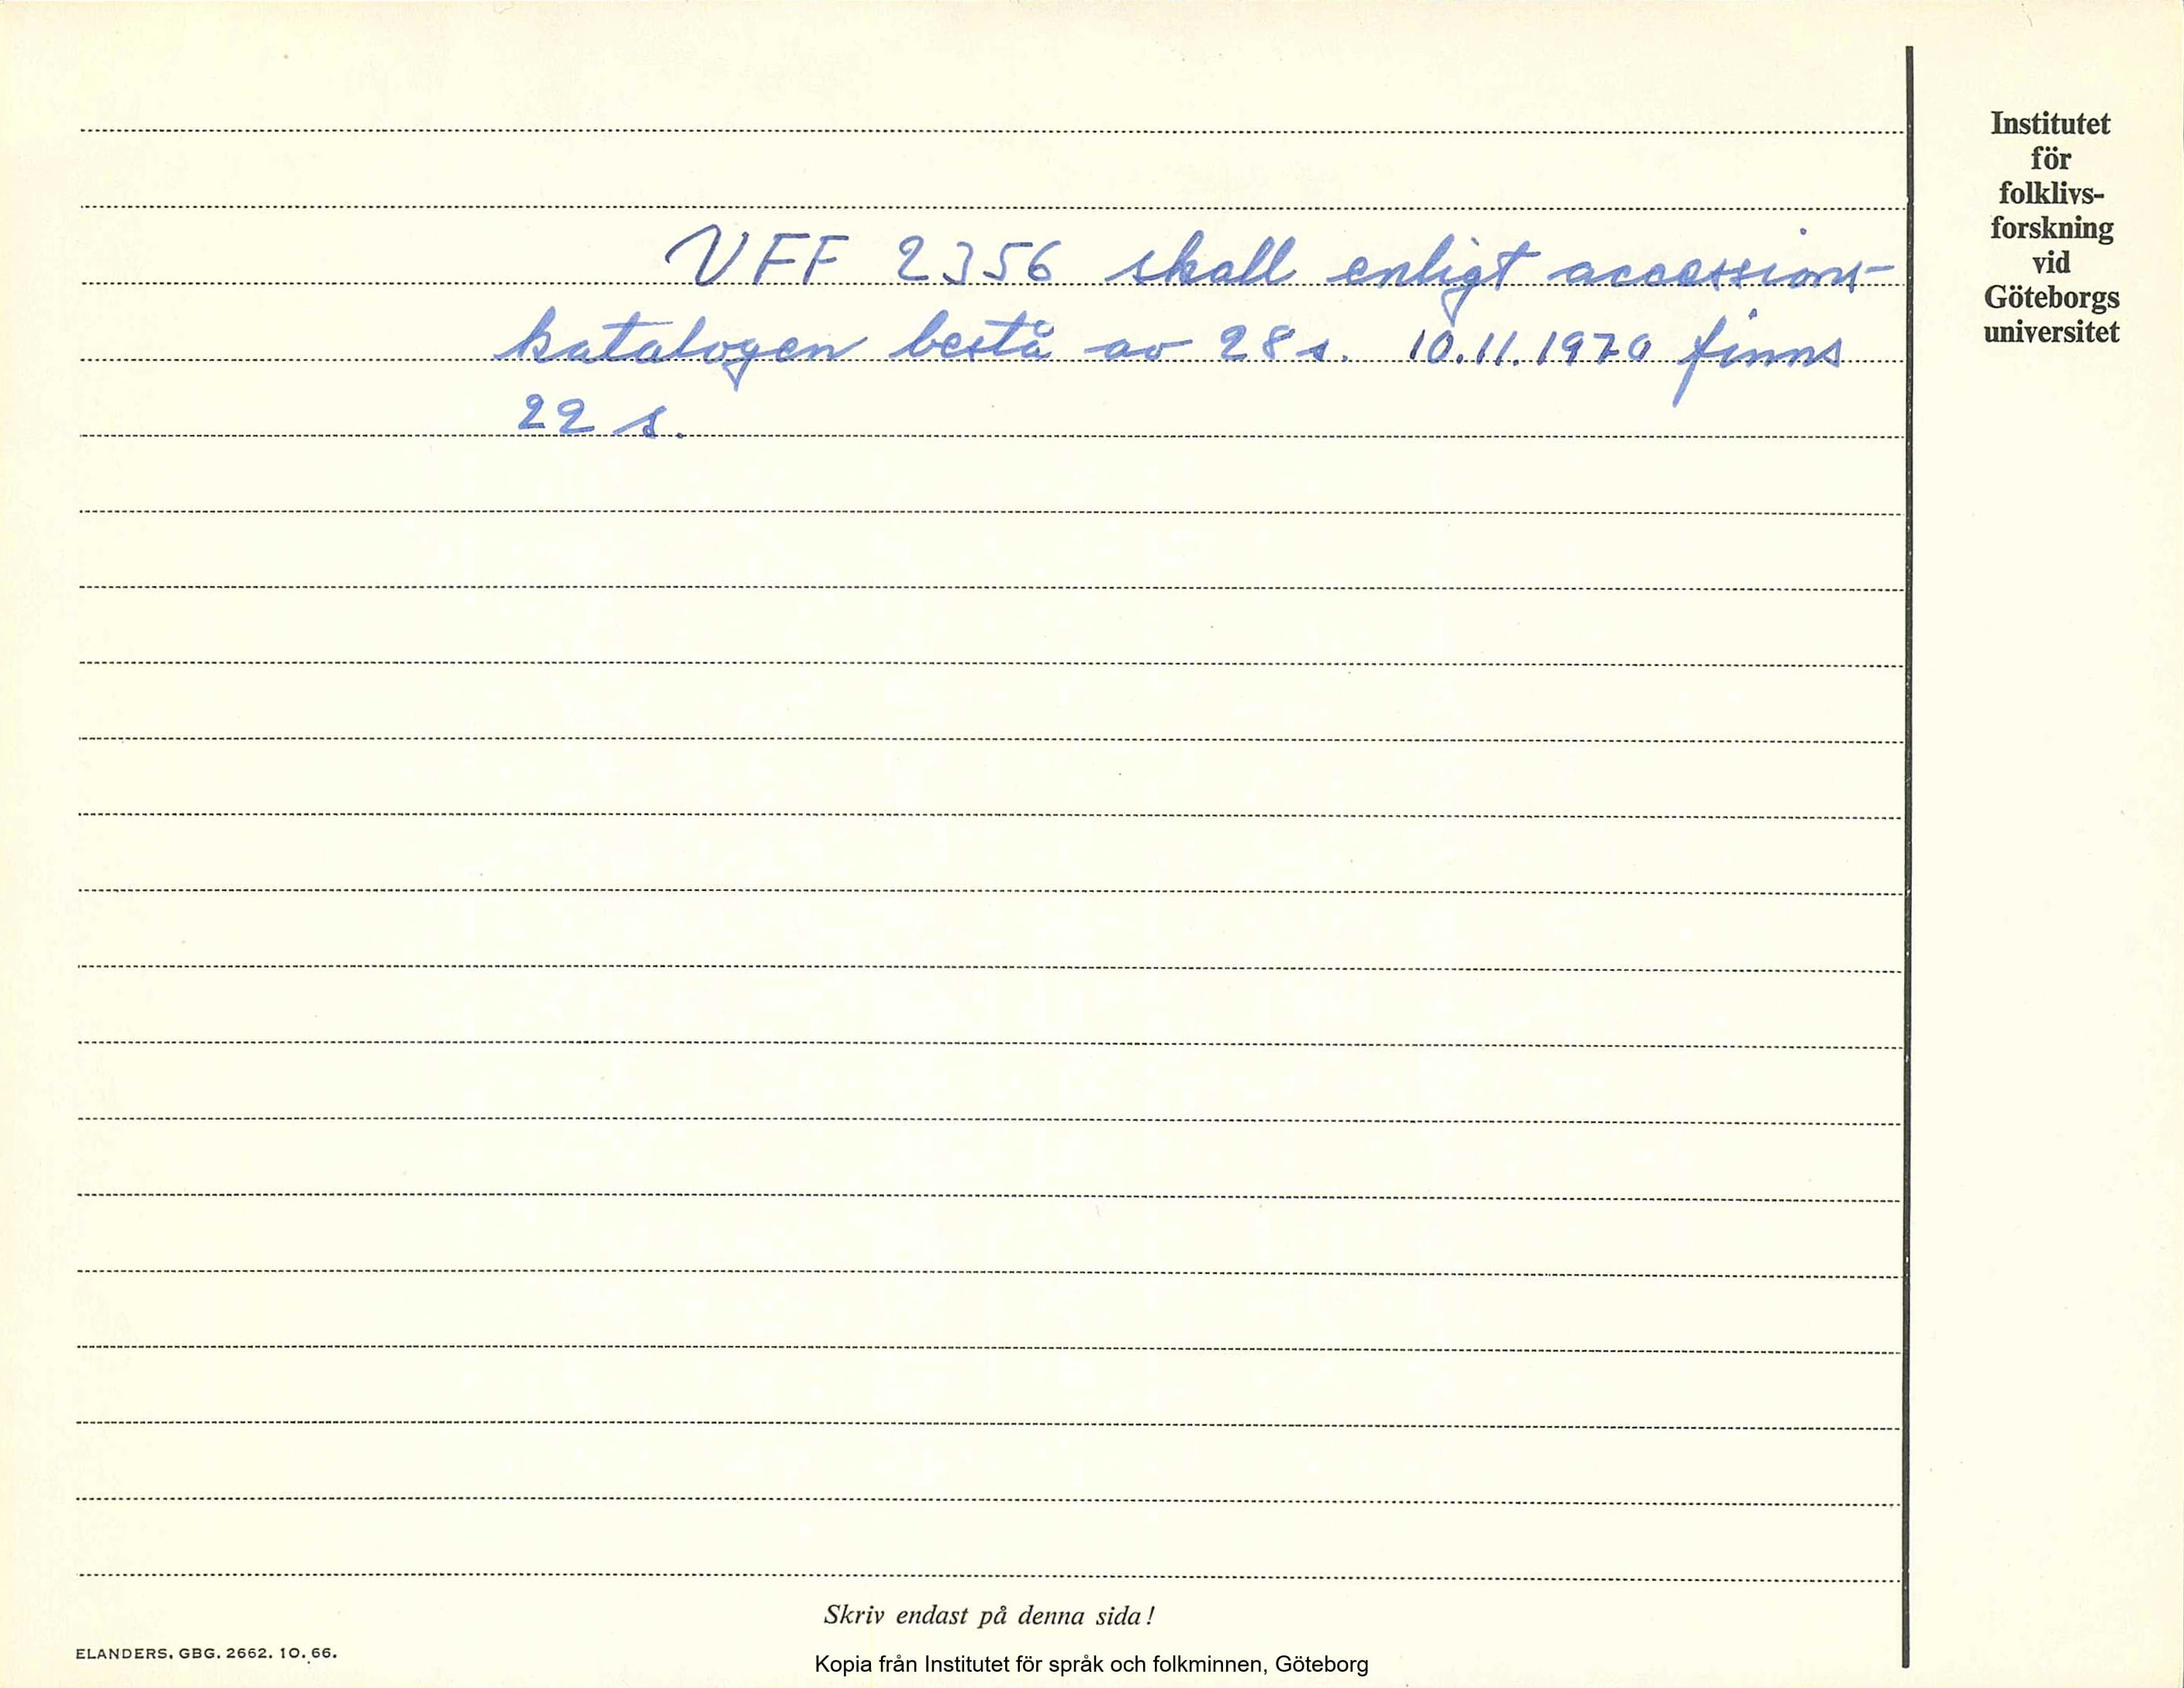 VFF 2356 skall enligt accessions-
katalogen bestå av 28 s. 10.11.1970 finns
22 s.
Institutet
för
folklivs-
forskning
vid
Göteborgs
universitet
Skriv endast på denna sida!
ELANDERS, GBG. 2662. 10. 66.
Kopia från Institutet för språk och folkminnen, Göteborg